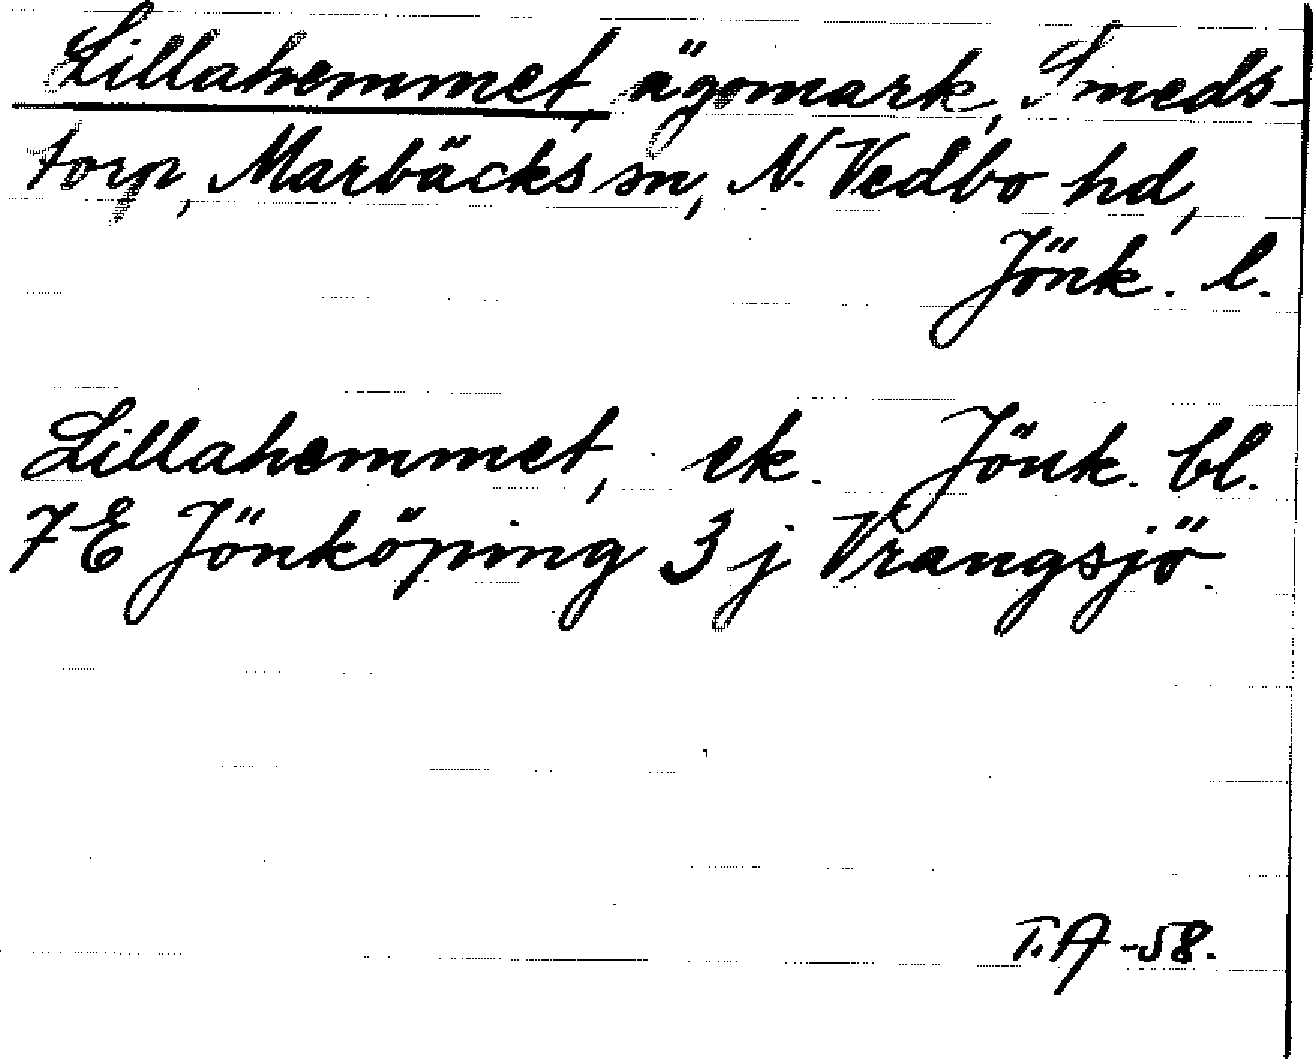 Lillahemmet, ägomark, Smeds-
torp, Marbäcks sn, N. Vedbo hd,
Jönk. l.
Lillahemmet, ek. Jönk. bl.
7 E Jönköping 3 j Vrangsjö
T.A -58.